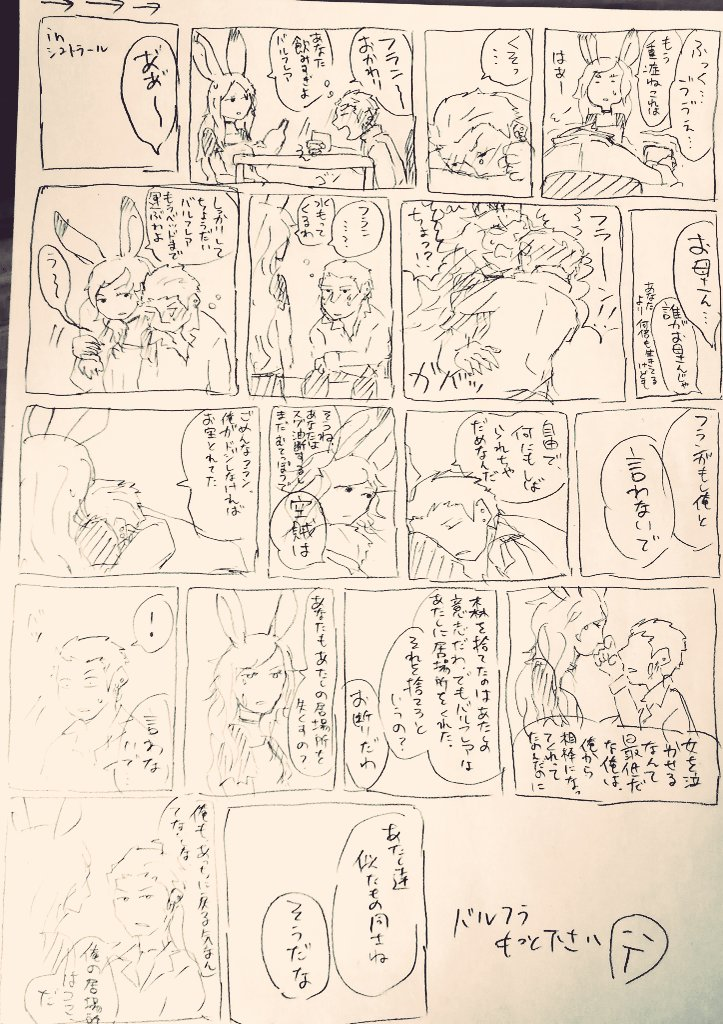 in
シュトラール
あぁ〜
フラン〜
おかわり
あなた
飲みすぎよ
バルフレア
ゴン
くそっ
…
ふっく…
ブブゥ…
もう
重症ねこれは
はぁー
しっかりして
ちょうだい
バルフレア
もうベッドまで
運ぶわよ
う〜
フラン
…?
水もって
くるわ
フラーン
ちょっ!?
ガバッ
お母さん…
誰がお母さんじゃ
あなた
より何倍も生きてる
けども
ごめんなフラン、
俺がドジしなければ
お宝とれてた
そうね、
あなたは
スグ油断するし
まだむてっぽうで
空賊は
自由で
何にもしば
られちゃ
だめなんだ
フランがもし俺と
言わないで
!
言わな
いで
あなたもあたしの居場所を
失くすの?
森を捨てたのはあたしの
意志だわ、でもバルフレアは
あたしに居場所をくれた、
それを捨てろと
いうの?
お断りだわ
女を泣
かせる
なんて
最低だ
な俺は、
俺から
相棒になっ
てくれって
たのんだのに
俺の居場所
は
だ
あたし達
似たもの同士ね
そうだな
バルフラ
もっと下さい